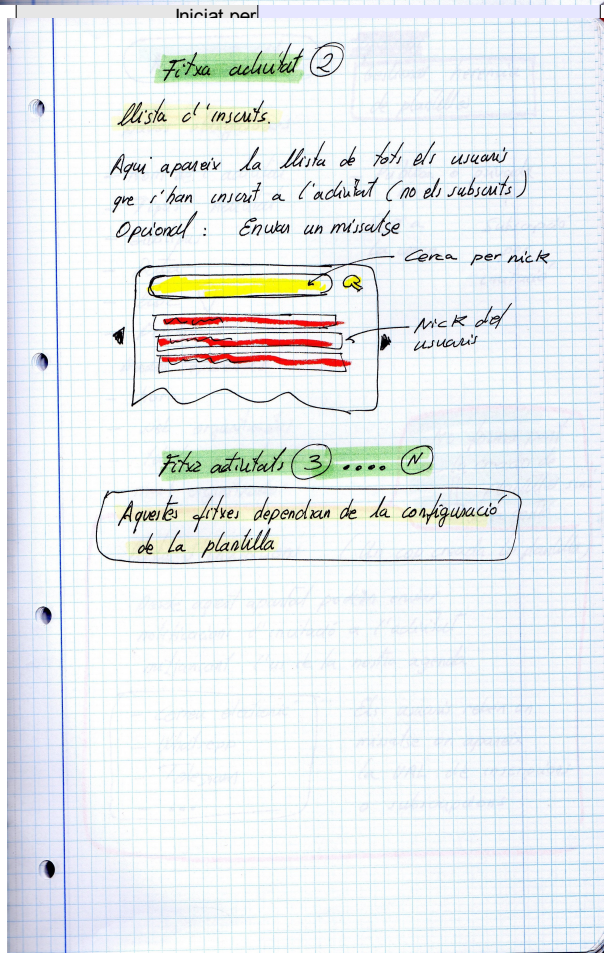 Iniciat per
Fitxa activitat 2
llista d'inscrits.
Aqui apareix la llista de tots els usuaris
que s'han inscrit a l'activitat (no els subscrits)
Opcional : Enviar un missatge
Cerca per nick
Nick del
usuaris
Fitxa activitats 3 .... N
Aquestes fitxes dependran de la configuració
de la plantilla